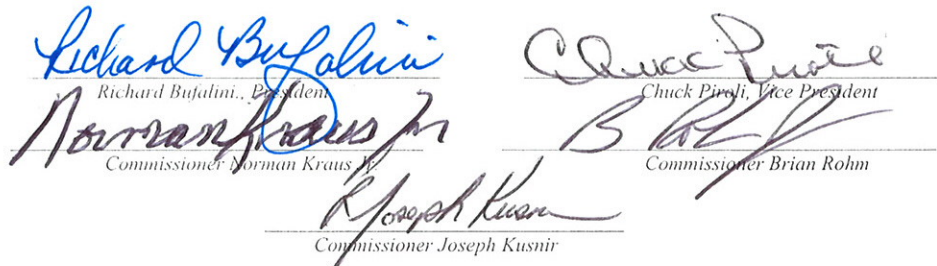 Richard Bufalini Chuck Piroli
Richard Bufalini., President Chuck Piroli, Vice President
Norman Kraus Jr B Rohm
Commissioner Norman Kraus Jr. Commissioner Brian Rohm
R Joseph Kusnir
Commissioner Joseph Kusnir